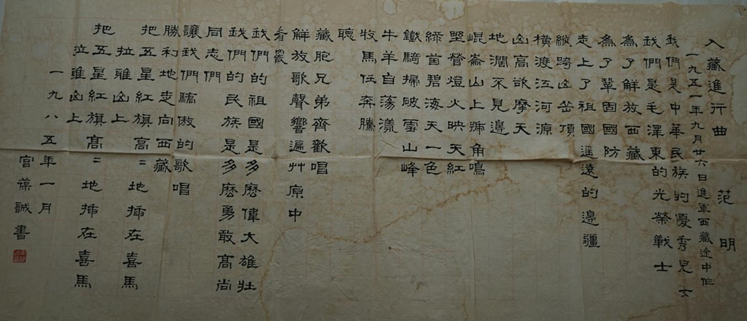 入藏進行曲 范明
一九五一年九月廿六日進軍西藏途中作
我們是中華民族的優秀兒女
我們是毛澤東的光榮戰士
為了解放西藏
為了鞏固國防
走上了祖國遙遠的邊疆
縱跨崑崙頂
橫渡江河源
凶高欲摩天
地濶不見邊
崑崙山上號角鳴
野營燈火映天紅
綠茵碧海天一色
鐵騎掃破雪山峰
牛羊自蕩漾
牧馬任奔騰
聽
藏胞兄弟齊歡唱
解放歌聲響遍艸原中
看
我們的祖國是多麼偉大雄壯
我們的民族是多麼勇敢高尚
同志們
讓我們驕傲的歌唱
勝利地走向西藏
把五星紅旗高〻地插在喜馬
拉雅山上
把五星紅旗高〻地插在喜馬
拉雅山上
一九八五年一月
宮葆誠書